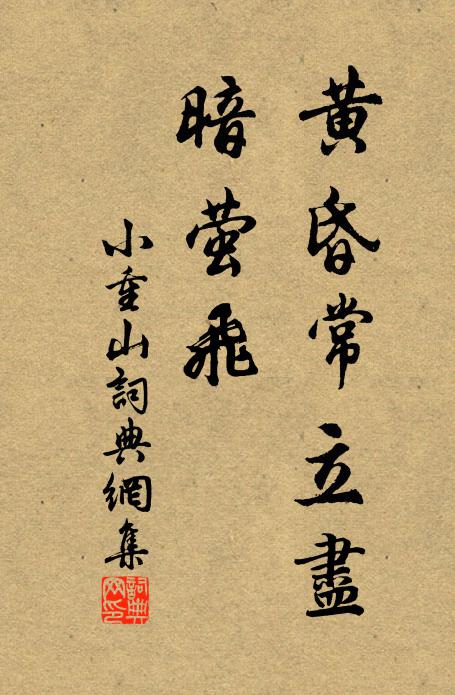 黄昏常立盡
暗萤飛
小重山詞典網集
詞典网印